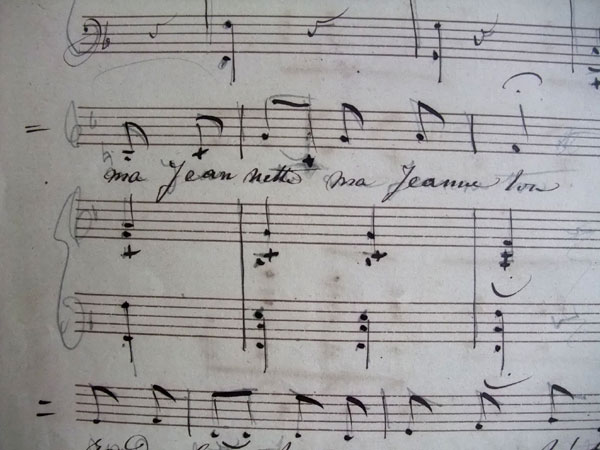 ma Jeannette ma Jeanneton